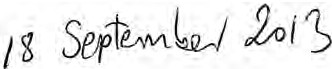 18 September 2013